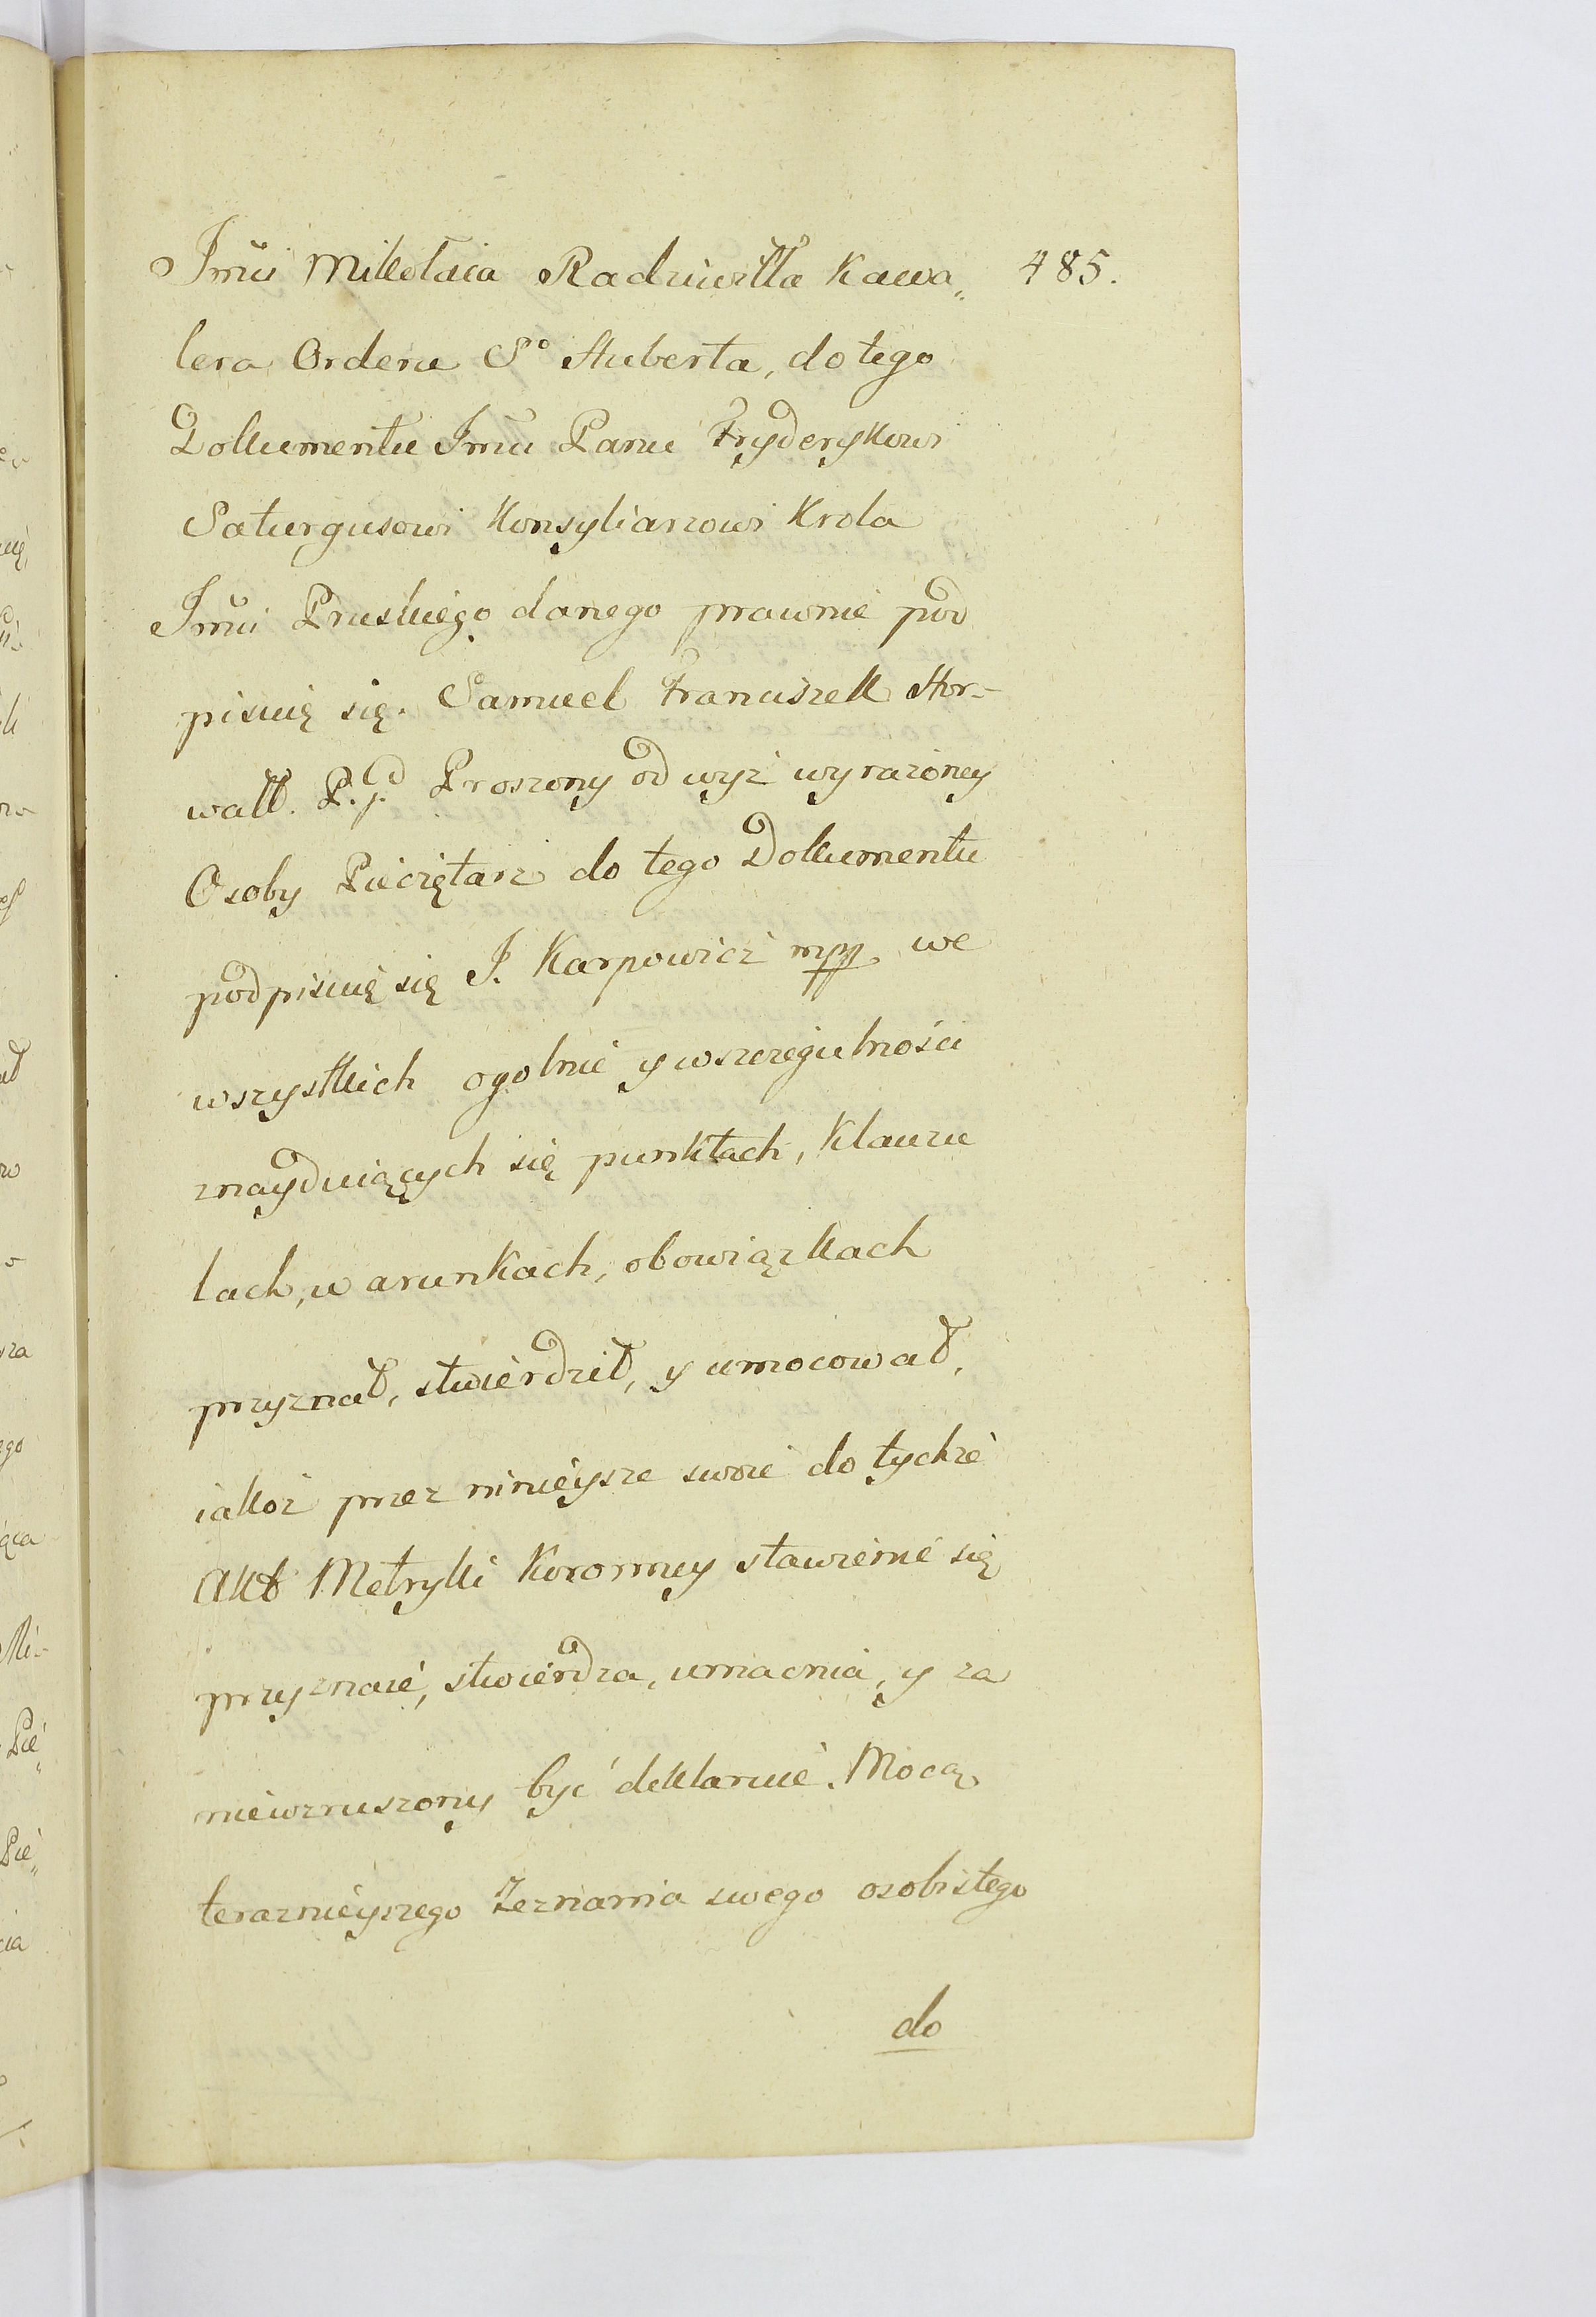 Jmci Mikołaia Radziwiłła Kawa„ 485.
lera Orderu So Huberta, do tego
Dokumentu Jmci Panu Fryderykowi
Saturgusowi Konsyliarzowi Krola
Jmci Pruskiego danego prawnie pod
pisuię się. Samuel Franciszek Hor-
watt. P.P. Proszony od wyż wyrażoney
Osoby Pieczętarz do tego Dokumentu
podpisuię się J. Karpowicz mpp we
wszystkich ogolnie y wszczegulności
znayduiących się punktach, Klauzu
lach, warunkach, obowiązkach
przyznał, stwierdził, y umocował,
iakoż przez ninieysze swoie do tychże
Akt Metryki Koronney stawienie się
przyznaie, stwierdza, umacnia, y za
niewzruszony być deklaruie. Mocą
teraznieyszego Zeznania swego osobistego
do